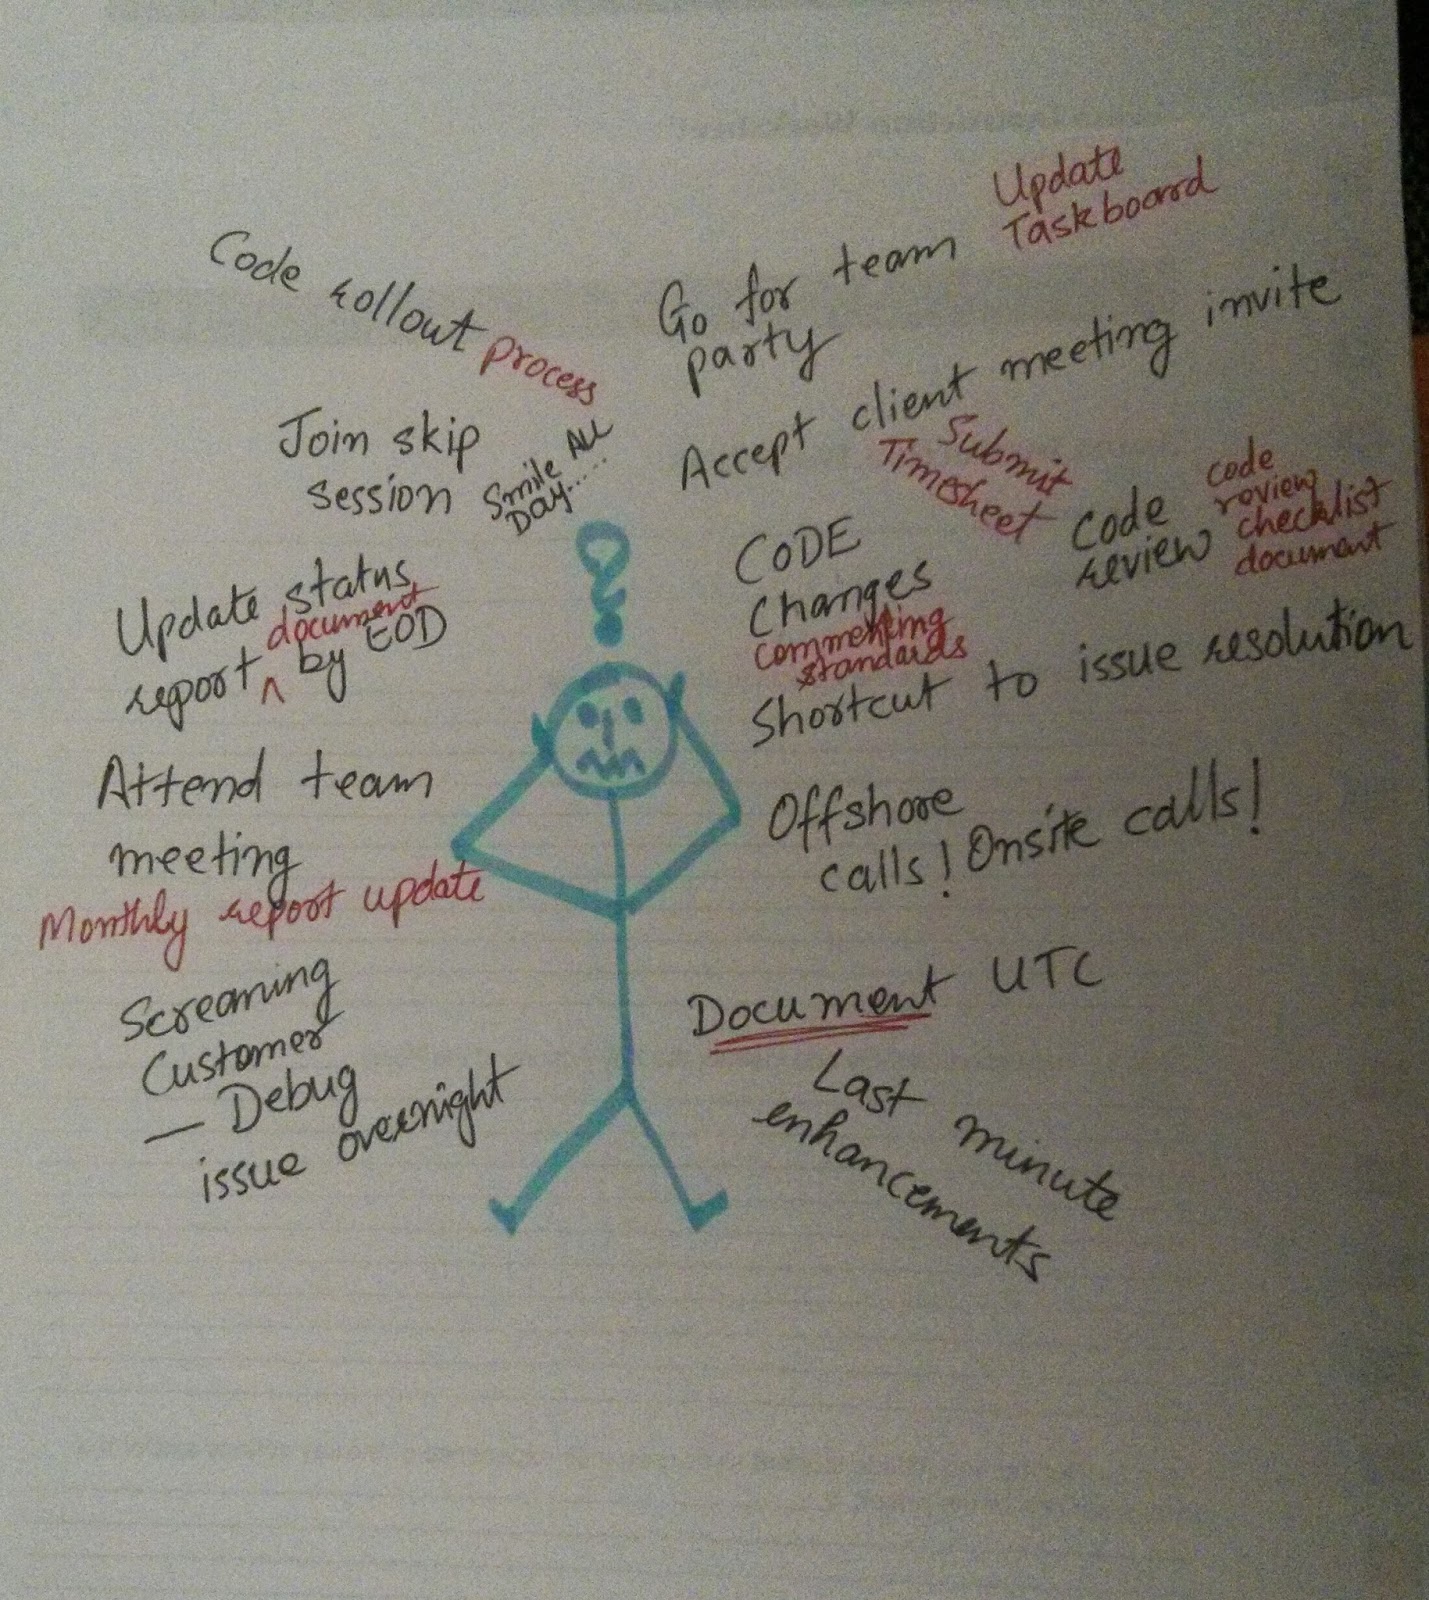 Update
Taskboard
Code rollout process
Go for team
party
Accept client meeting invite
Submit
Timesheet
Join skip
session
Smile ALL
DAY....
CODE
Changes
commenting
standards
Code
review
code
review
checklist
document
Update status
document
report ^ by EOD
Shortcut to issue resolution
Attend team
meeting
Monthly report update
Offshore
calls! Onsite calls!
Screaming
Customer
— Debug
issue overnight
Document UTC
Last minute
enhancements